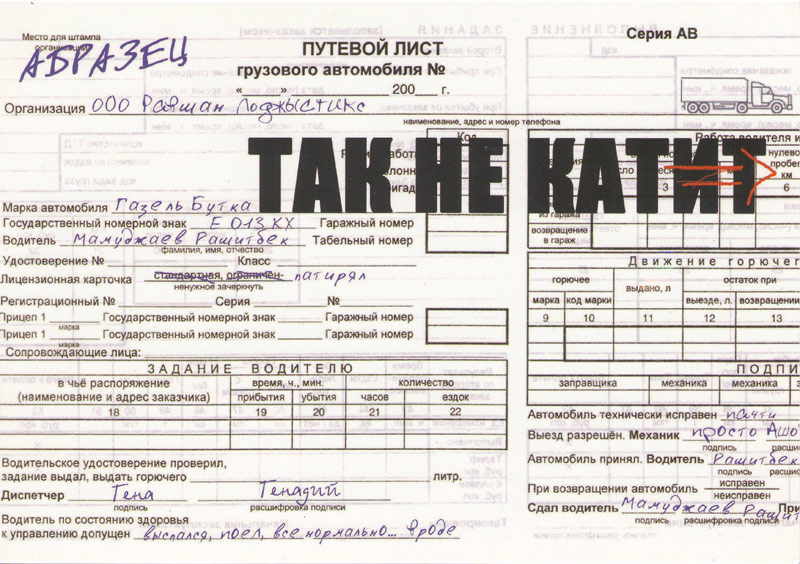 Место для штампа
организации
АБРАЗЕЦ
ПУТЕВОЙ ЛИСТ
Серия АВ
грузового автомобиля №
«______» ________ 200___ г.
Организация ООО Равшан Лоджыстикс
наименование, адрес и номер телефона
Код
Работа водителя и
ТАК НЕ КАТИТ
нулевой
пробег
км
3
6
из гаража
возвращение
в гараж
Марка автомобиля Газель Бутка
Государственный номерной знак Е 013 КХ Гаражный номер
Водитель Мамуджаев Рашитбек Табельный номер
фамилия, имя, отчество
Удостоверение № Класс
Лицензионная карточка стандартная, ограничен- патирял
ненужное зачеркнуть
Регистрационный № Серия №
Прицеп 1 Государственный номерной знак Гаражный номер
марка
Прицеп 1 Государственный номерной знак Гаражный номер
марка
Сопровождающие лица:
Движение горючег
горючее выдано, л остаток при
марка код марки выезде, л. возвращении
9 10 11 12 13
ЗАДАНИЕ ВОДИТЕЛЮ
в чьё распоряжение
(наименование и адрес заказчика)
время, ч., мин. количество
прибытия убытия часов ездок
18 19 20 21 22
ПОДПИ
заправщика механика механика
Водительское удостоверение проверил,
задание выдал, выдать горючего литр.
Диспетчер Гена Генадий
подпись расшифровка подписи
Водитель по состоянию здоровья
к управлению допущен выспался, поел, все нормально... вроде
Автомобиль технически исправен пачти
Выезд разрешён. Механик просто Ашо
подпись расшиф
Автомобиль принял. Водитель Рашитбек
подпись
При возвращении автомобиль исправен
неисправен
Сдал водитель Мамуджаев Рашит При
подпись расшифровка подписи